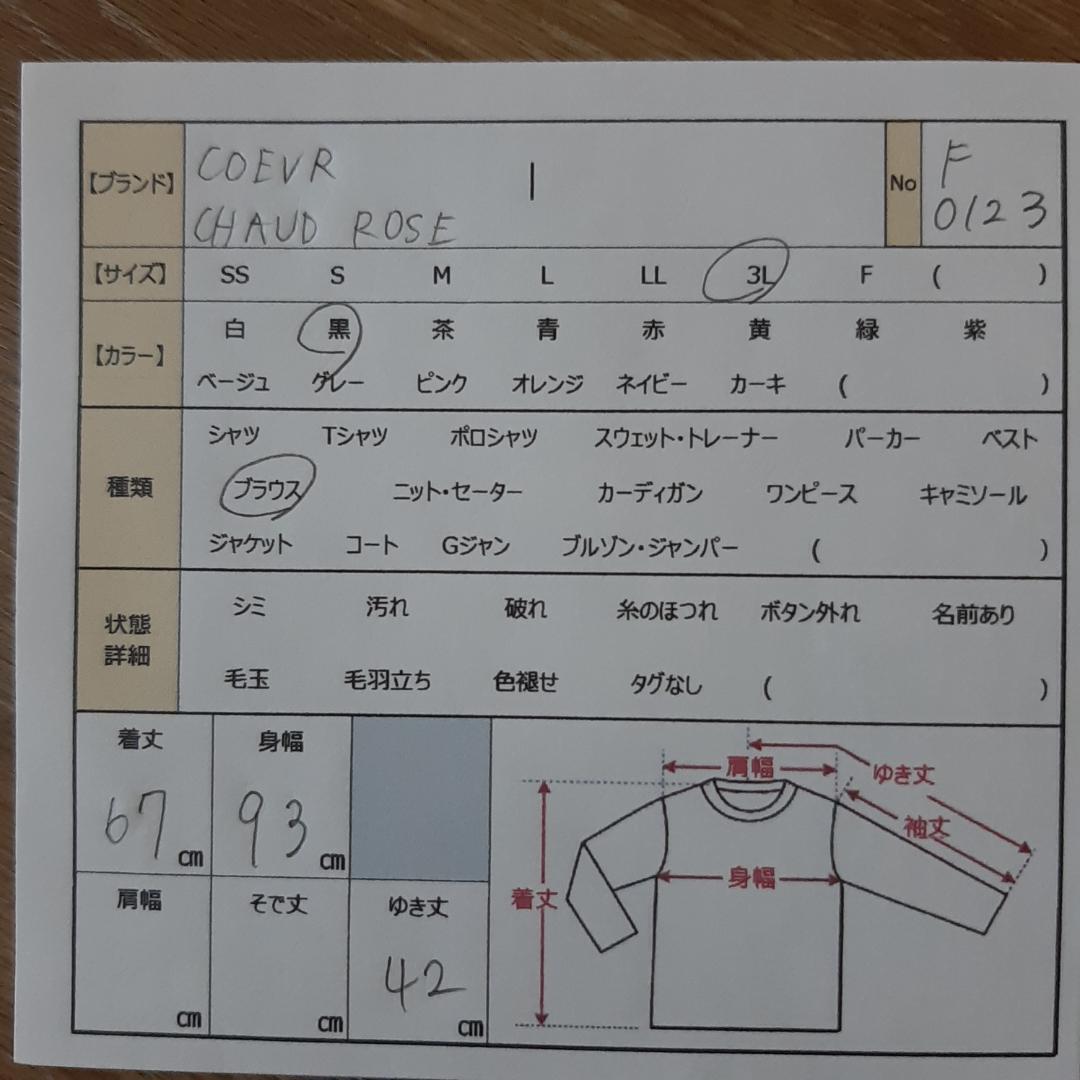 【ブランド】 COEVR | No F
CHAUD ROSE 0123
【サイズ】 SS S M L LL 3L F ( )
【カラー】 白 黒 茶 青 赤 黄 緑 紫
ベージュ グレー ピンク オレンジ ネイビー カーキ ( )
種類 シャツ Tシャツ ポロシャツ スウェット・トレーナー パーカー ベスト
ブラウス ニット・セーター カーディガン ワンピース キャミソール
ジャケット コート Gジャン ブルゾン・ジャンパー ( )
状態
詳細
シミ 汚れ 破れ 糸のほつれ ボタン外れ 名前あり
毛玉 毛羽立ち 色褪せ タグなし ( )
着丈 身幅
67 cm 93 cm
肩幅 そで丈 ゆき丈
cm cm 42 cm
肩幅 ゆき丈
袖丈
身幅
着丈